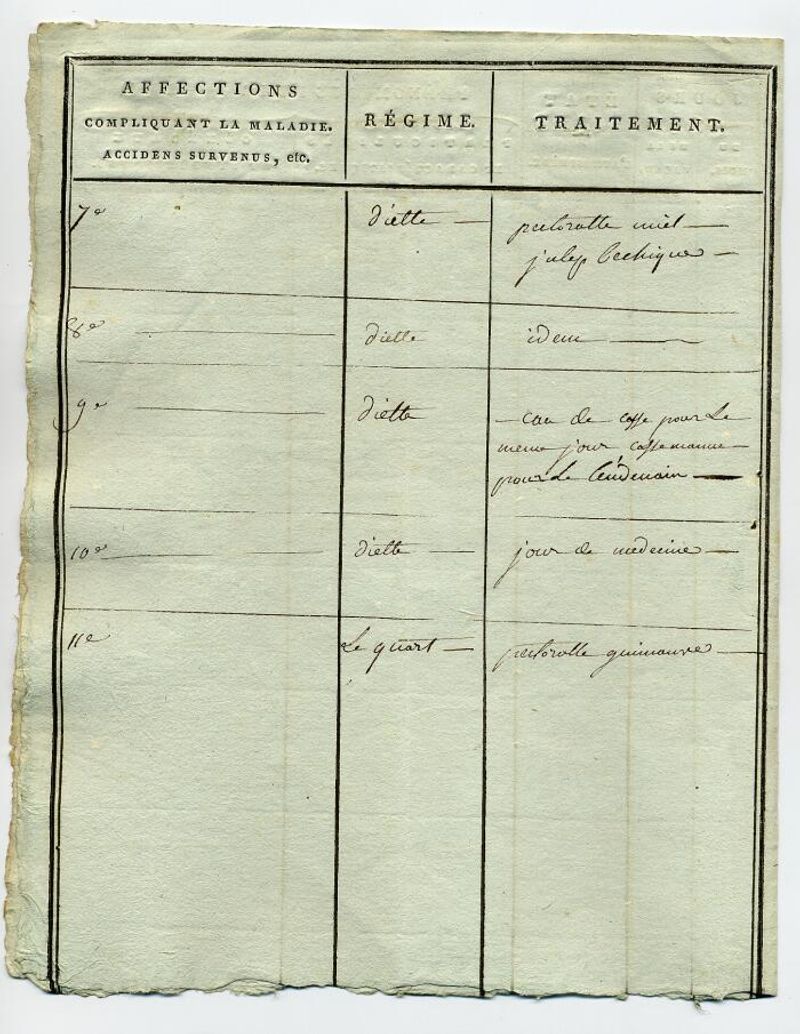 AFFECTIONS
COMPLIQUANT LA MALADIE.
ACCIDENS SURVENUS, etc.
RÉGIME.
TRAITEMENT.
7e
diette —
pectoralle miel —
julep bechique —
8e —
diette
idem —
9e —
diette
— eau de casse pour le
meme jour casse manne —
pour Le lendemain —
10e —
diette —
jour de medecine —
11e
Le quart —
pectoralle guimauve —